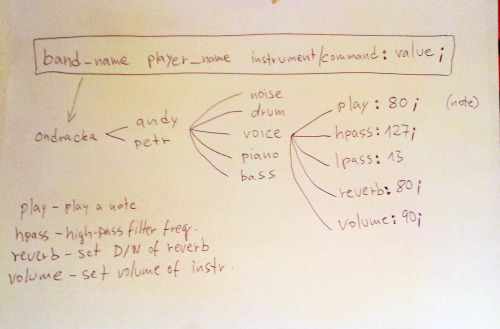 band_name player_name instrument/command: value;
ondracka
andy
petr
noise
drum
voice
piano
bass
play: 80; (note)
hpass: 127;
lpass: 13
reverb: 80;
volume: 90;
play - play a note
hpass - high-pass filter freq.
reverb - set D/W of reverb
volume - set volume of instr.